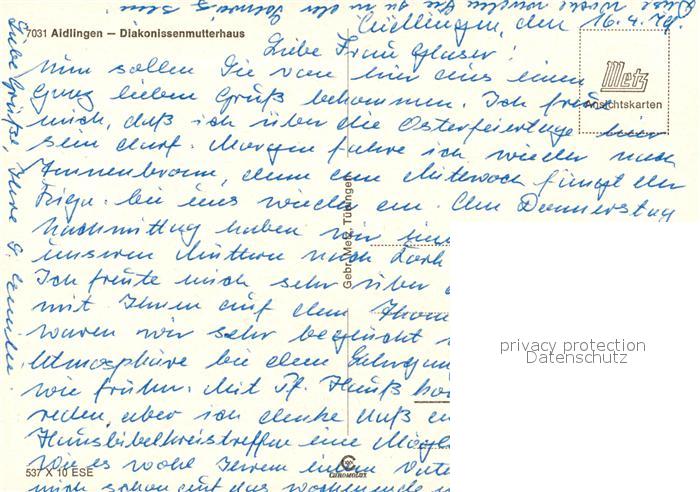 7031 Aidlingen — Diakonissenmutterhaus
Aidlingen, den 16.4.79.
Liebe Frau Glaser!
Nun sollen Sie von hier aus einen
ganz lieben Gruß bekommen. Ich freue
mich, daß ich über die Osterfeiertage hier
sein darf. Morgen fahre ich wieder nach
denn am Mittwoch fängt der
bei uns wieder an. Am Donnerstag
Nachmittag haben wir
unseren Müttern nach
Ich freute mich sehr über
mit Ihnen auf dem
waren wir sehr beglückt
Atmosphäre bei dem
wie früher. Mit Pf. Hauß
reden, aber ich denke daß
Hausbibelkreistreffen eine
Wie es wohl Ihrem lieben
mich schon auf das Wochenende
Liebe Grüße, Ihre
Metz
Ansichtskarten
Gebr. Metz, Tübingen
privacy protection
Datenschutz
537 X 10 ESE
CHROMOLUX